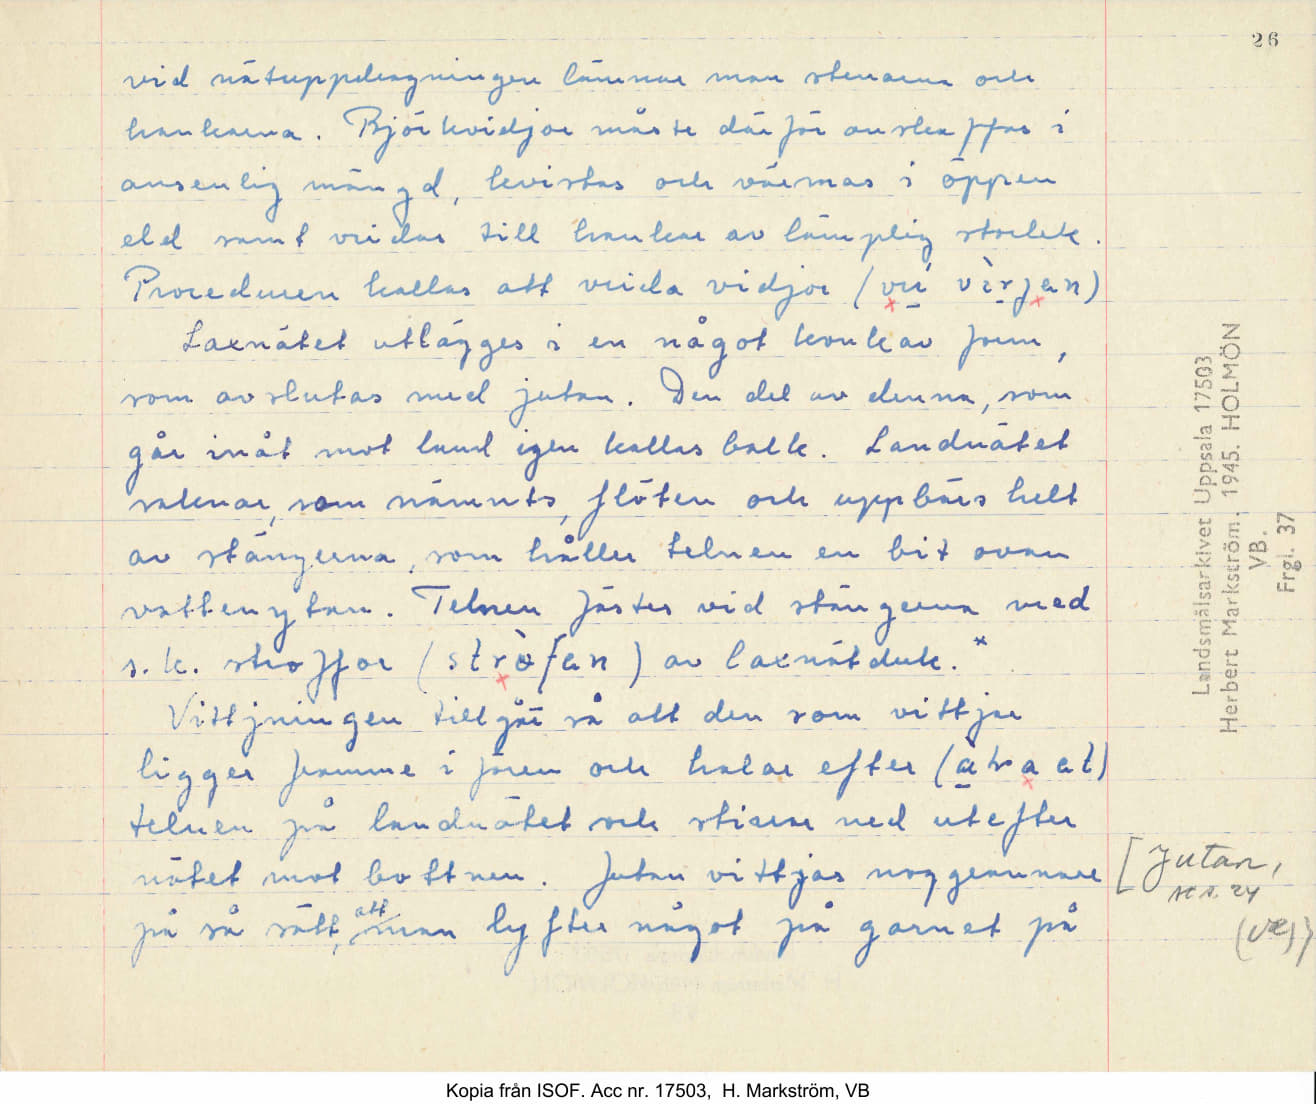 26
vid nätuppdragningen lämnar man stenarna och
hankarna. Björkvidjor måste därför anskaffas i
ansenlig mängd, kvistas och värmas i öppen
eld samt vridas till hankar av lämplig storlek.
Proceduren kallas att vrida vidjor (vri vìrjan)
Laxnätet utlägges i en något konkav form,
som avslutas med jutan. Den del av denna, som
går inåt mot land igen kallas balk. Landnätet
saknar, som nämnts, flöten och uppbärs helt
av stängerna, som håller telnen en bit ovan
vattenytan. Telnen fästes vid stängerna med
s.k. stroffor (stròfan) av laxnätduk.*
Vittjningen tillgår så att den som vittjar
ligger framme i fören och halar efter (àtra at)
telnen på landnätet och stirrar ned utefter
nätet mot bottnen. Jutan vittjas noggrannare
på så sätt, att man lyfter något på garnet på
[Jutan,
se s. 24
Landsmålsarkivet Uppsala 17503
Herbert Markström. 1945. HOLMÖN
VB.
Frgl. 37
Kopia från ISOF. Acc nr. 17503, H. Markström, VB